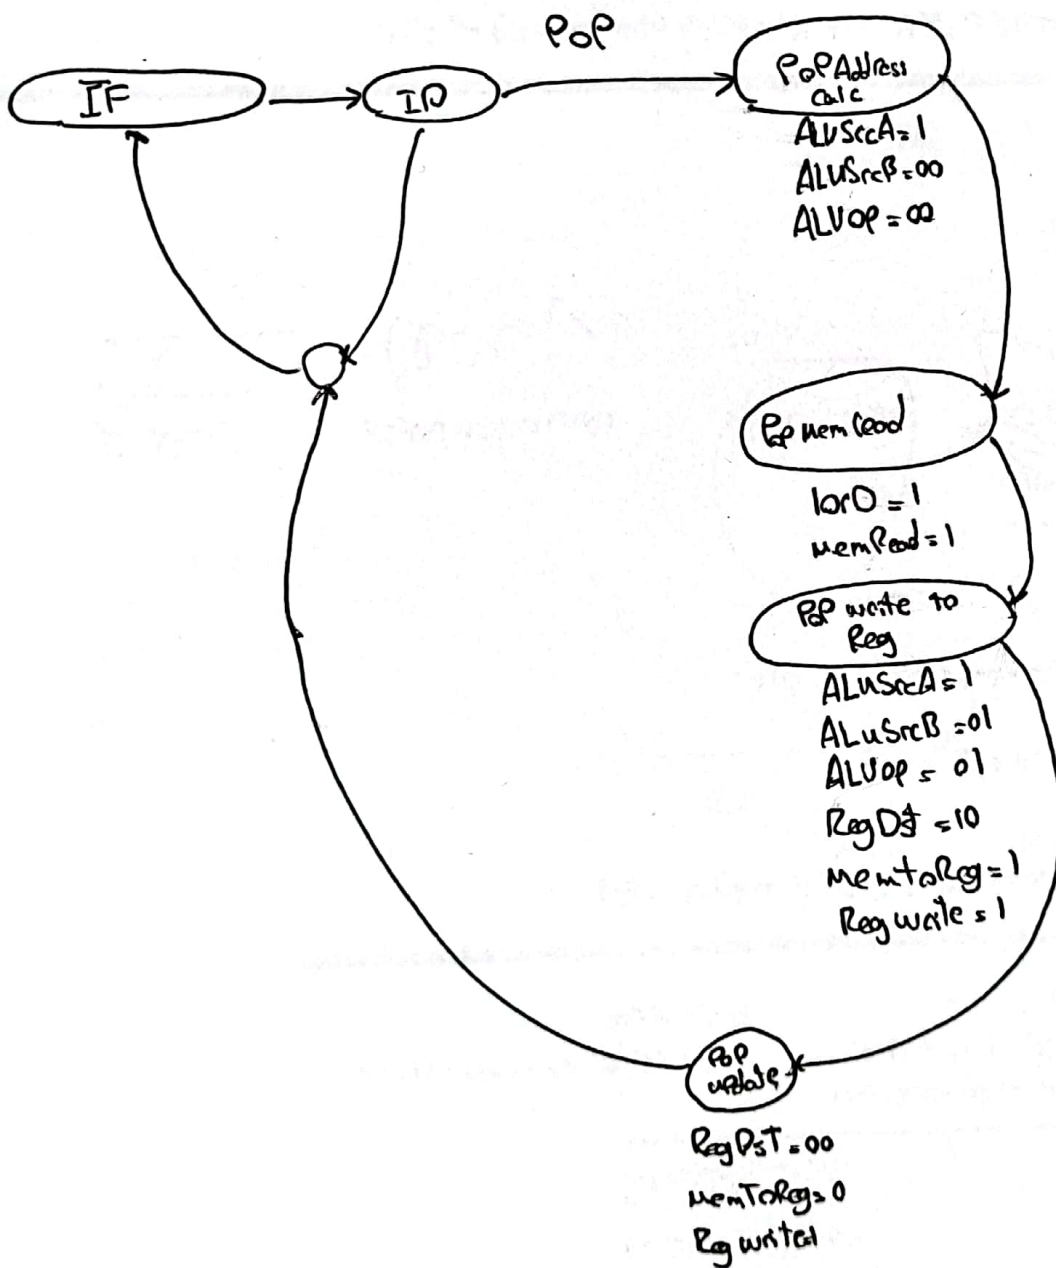 POP
IF
ID
POP Address
calc
ALUSrcA=1
ALUSrcB=00
ALUOP=00
POP Mem Read
IorD=1
MemRead=1
POP write to
Reg
ALUSrcA=1
ALUSrcB=01
ALUOP=01
RegDst=10
MemtoReg=1
Reg write=1
POP
update
RegDsT=00
MemToReg=0
Reg write=1